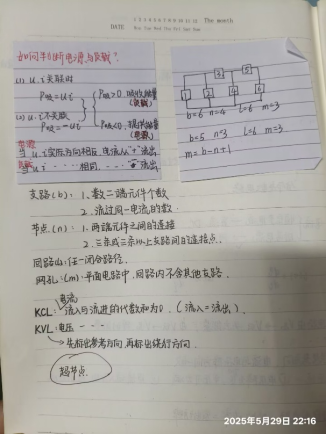 1 2 3 4 5 6 7 8 9 10 11 12 The month
DATE
Mon Tue Wed Thu Fri Sat Sun
如何判断电源与负载?
(1) u.i关联时
P吸=ui
P吸>0,吸收能量
(负载)
(2) u.i不关联
P吸=-ui
P吸<0,提供能量
(电源)
电源
当u.i实际方向相反,电流从"+"流出
负载
当u.i - - - - - 相同, - - - - - 流出
1
2
3
4
5
6
b=6 n=4 l=6 m=3
b=5 n=3 l=6 m=3
m=b-n+1
支路(b): 1.数二端元件个数
2.流过同一电流的数.
节点(n): 1.两端元件之间的连接
2.三条或三条以上支路间的连接点.
回路(l):任一闭合路径.
网孔:(m):平面电路中,回路内不含其他支路.
电流
KCL:流入与流进的代数和为0.(流入=流出)
KVL:电压 - - -
先标出参考方向,再标出绕行方向.
超节点
2025年5月29日 22:16